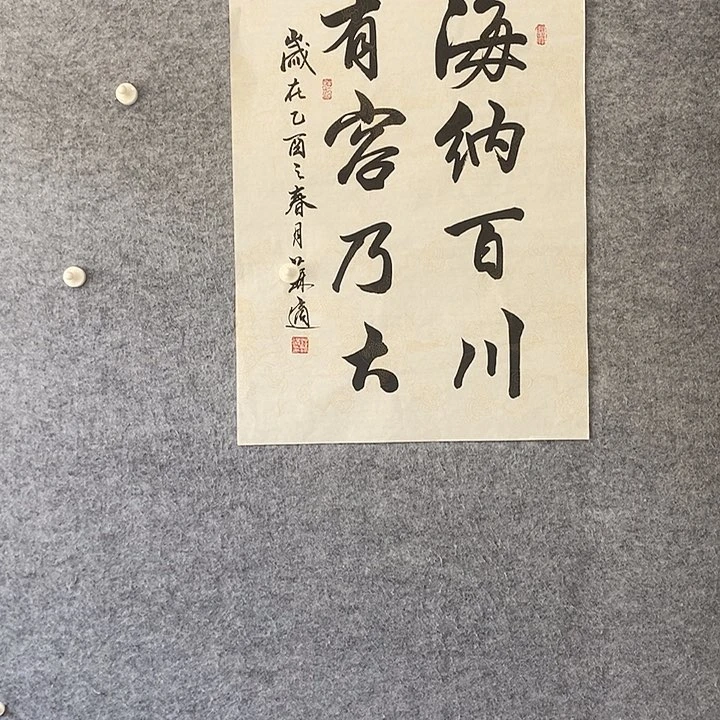 海纳百川
有容乃大
歲在乙酉之春月